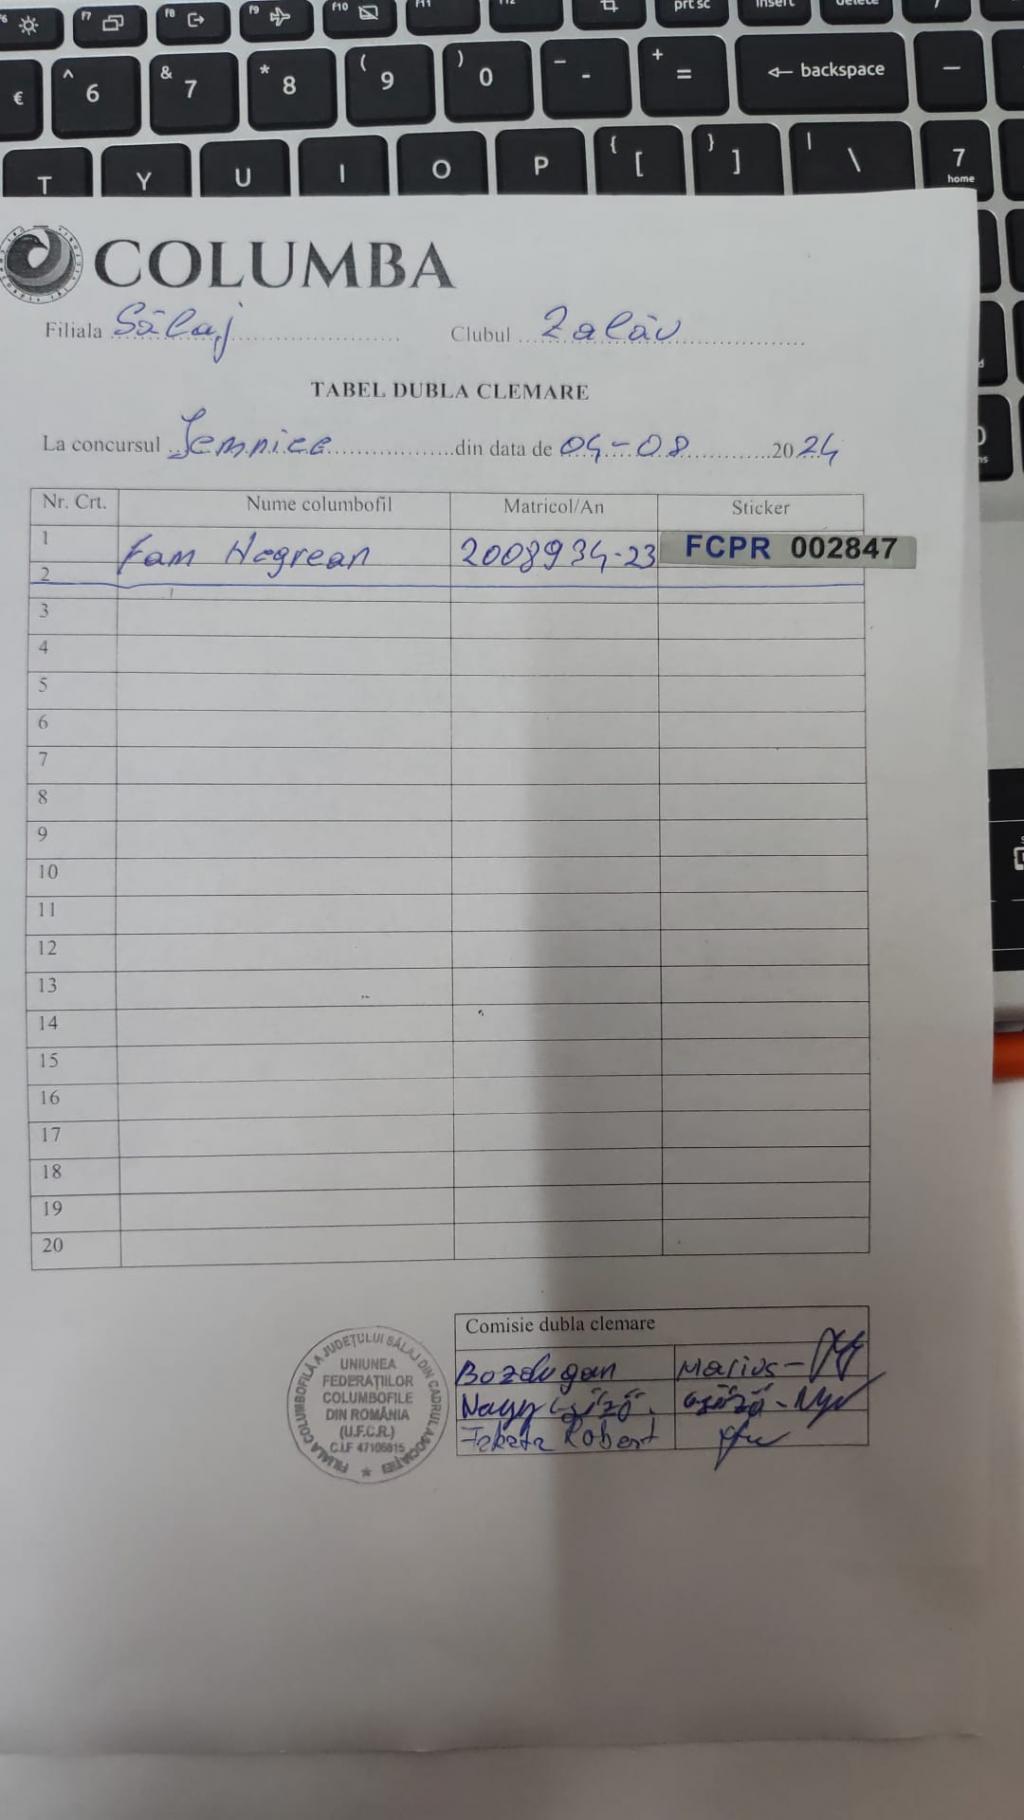 f6 f7 f8 f9 f10 f11 f12 prt sc insert delete
€ ^ 6 & 7 * 8 ( 9 ) 0 _ - + = backspace —
T Y U I O P { [ } ] | \ 7 home
COLUMBA
Filiala Sălaj Clubul Zalău
TABEL DUBLA CLEMARE
La concursul Jemnice din data de 04-08 2024
Nr. Crt. Nume columbofil Matricol/An Sticker
1 Fam Hegrean 2008934-23 FCPR 002847
2
3
4
5
6
7
8
9
10
11
12
13
14
15
16
17
18
19
20
Comisie dubla clemare
Bozdugan Marius -
Nagy Győző Győző -
Fekete Robert
FILIALA COLUMBOFILĂ A JUDEȚULUI SĂLAJ DIN CADRUL ASOCIAȚIEI
UNIUNEA
FEDERAȚIILOR
COLUMBOFILE
DIN ROMÂNIA
(U.F.C.R.)
C.I.F 47106815